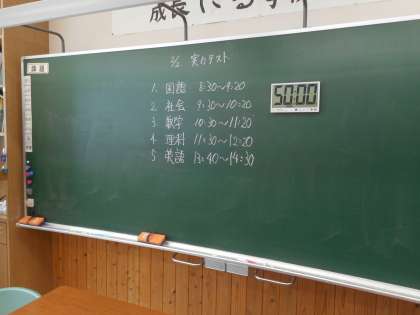 成長する学
課題
実力テスト
1. 国語 8:30~9:20
2. 社会 9:30~10:20
3. 数学 10:30~11:20
4. 理科 11:30~12:20
5. 英語 13:40~14:30
50:00